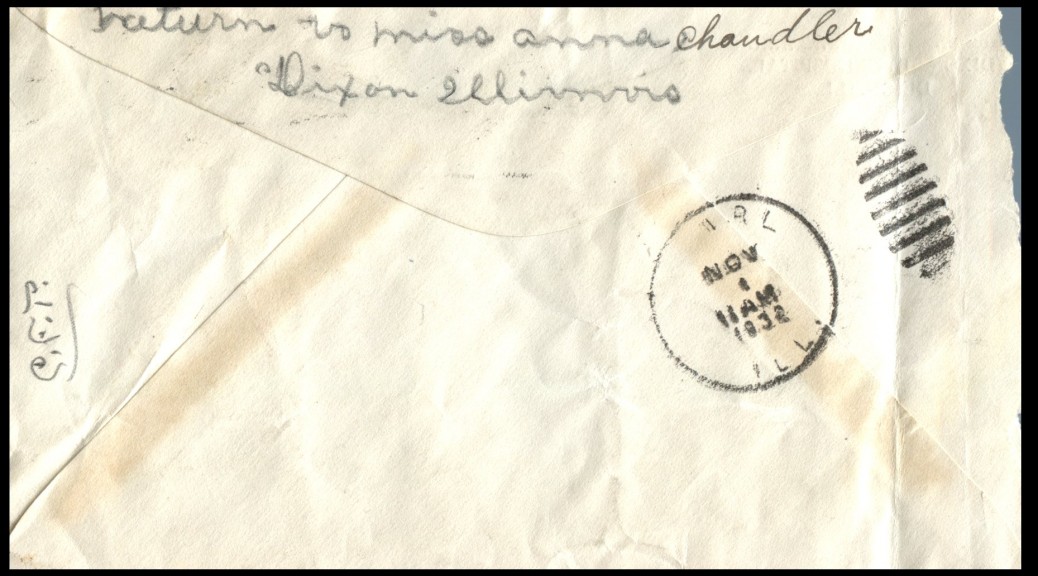 return to miss anna Chandler
Dixon Illinois
NOV
1
11AM
1932
ILL.